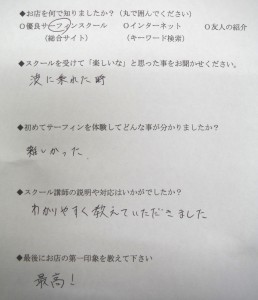 ◆お店を何で知りましたか？（丸で囲んでください）
○優良サーフィンスクール　○インターネット　○友人の紹介
（総合サイト）　（キーワード検索）
◆スクールを受けて「楽しいな」と思った事をお聞かせください。
波に乗れた時
◆初めてサーフィンを体験してどんな事が分かりましたか？
難しかった
◆スクール講師の説明や対応はいかがでしたか？
わかりやすく教えていただきました
◆最後にお店の第一印象を教えて下さい
最高！